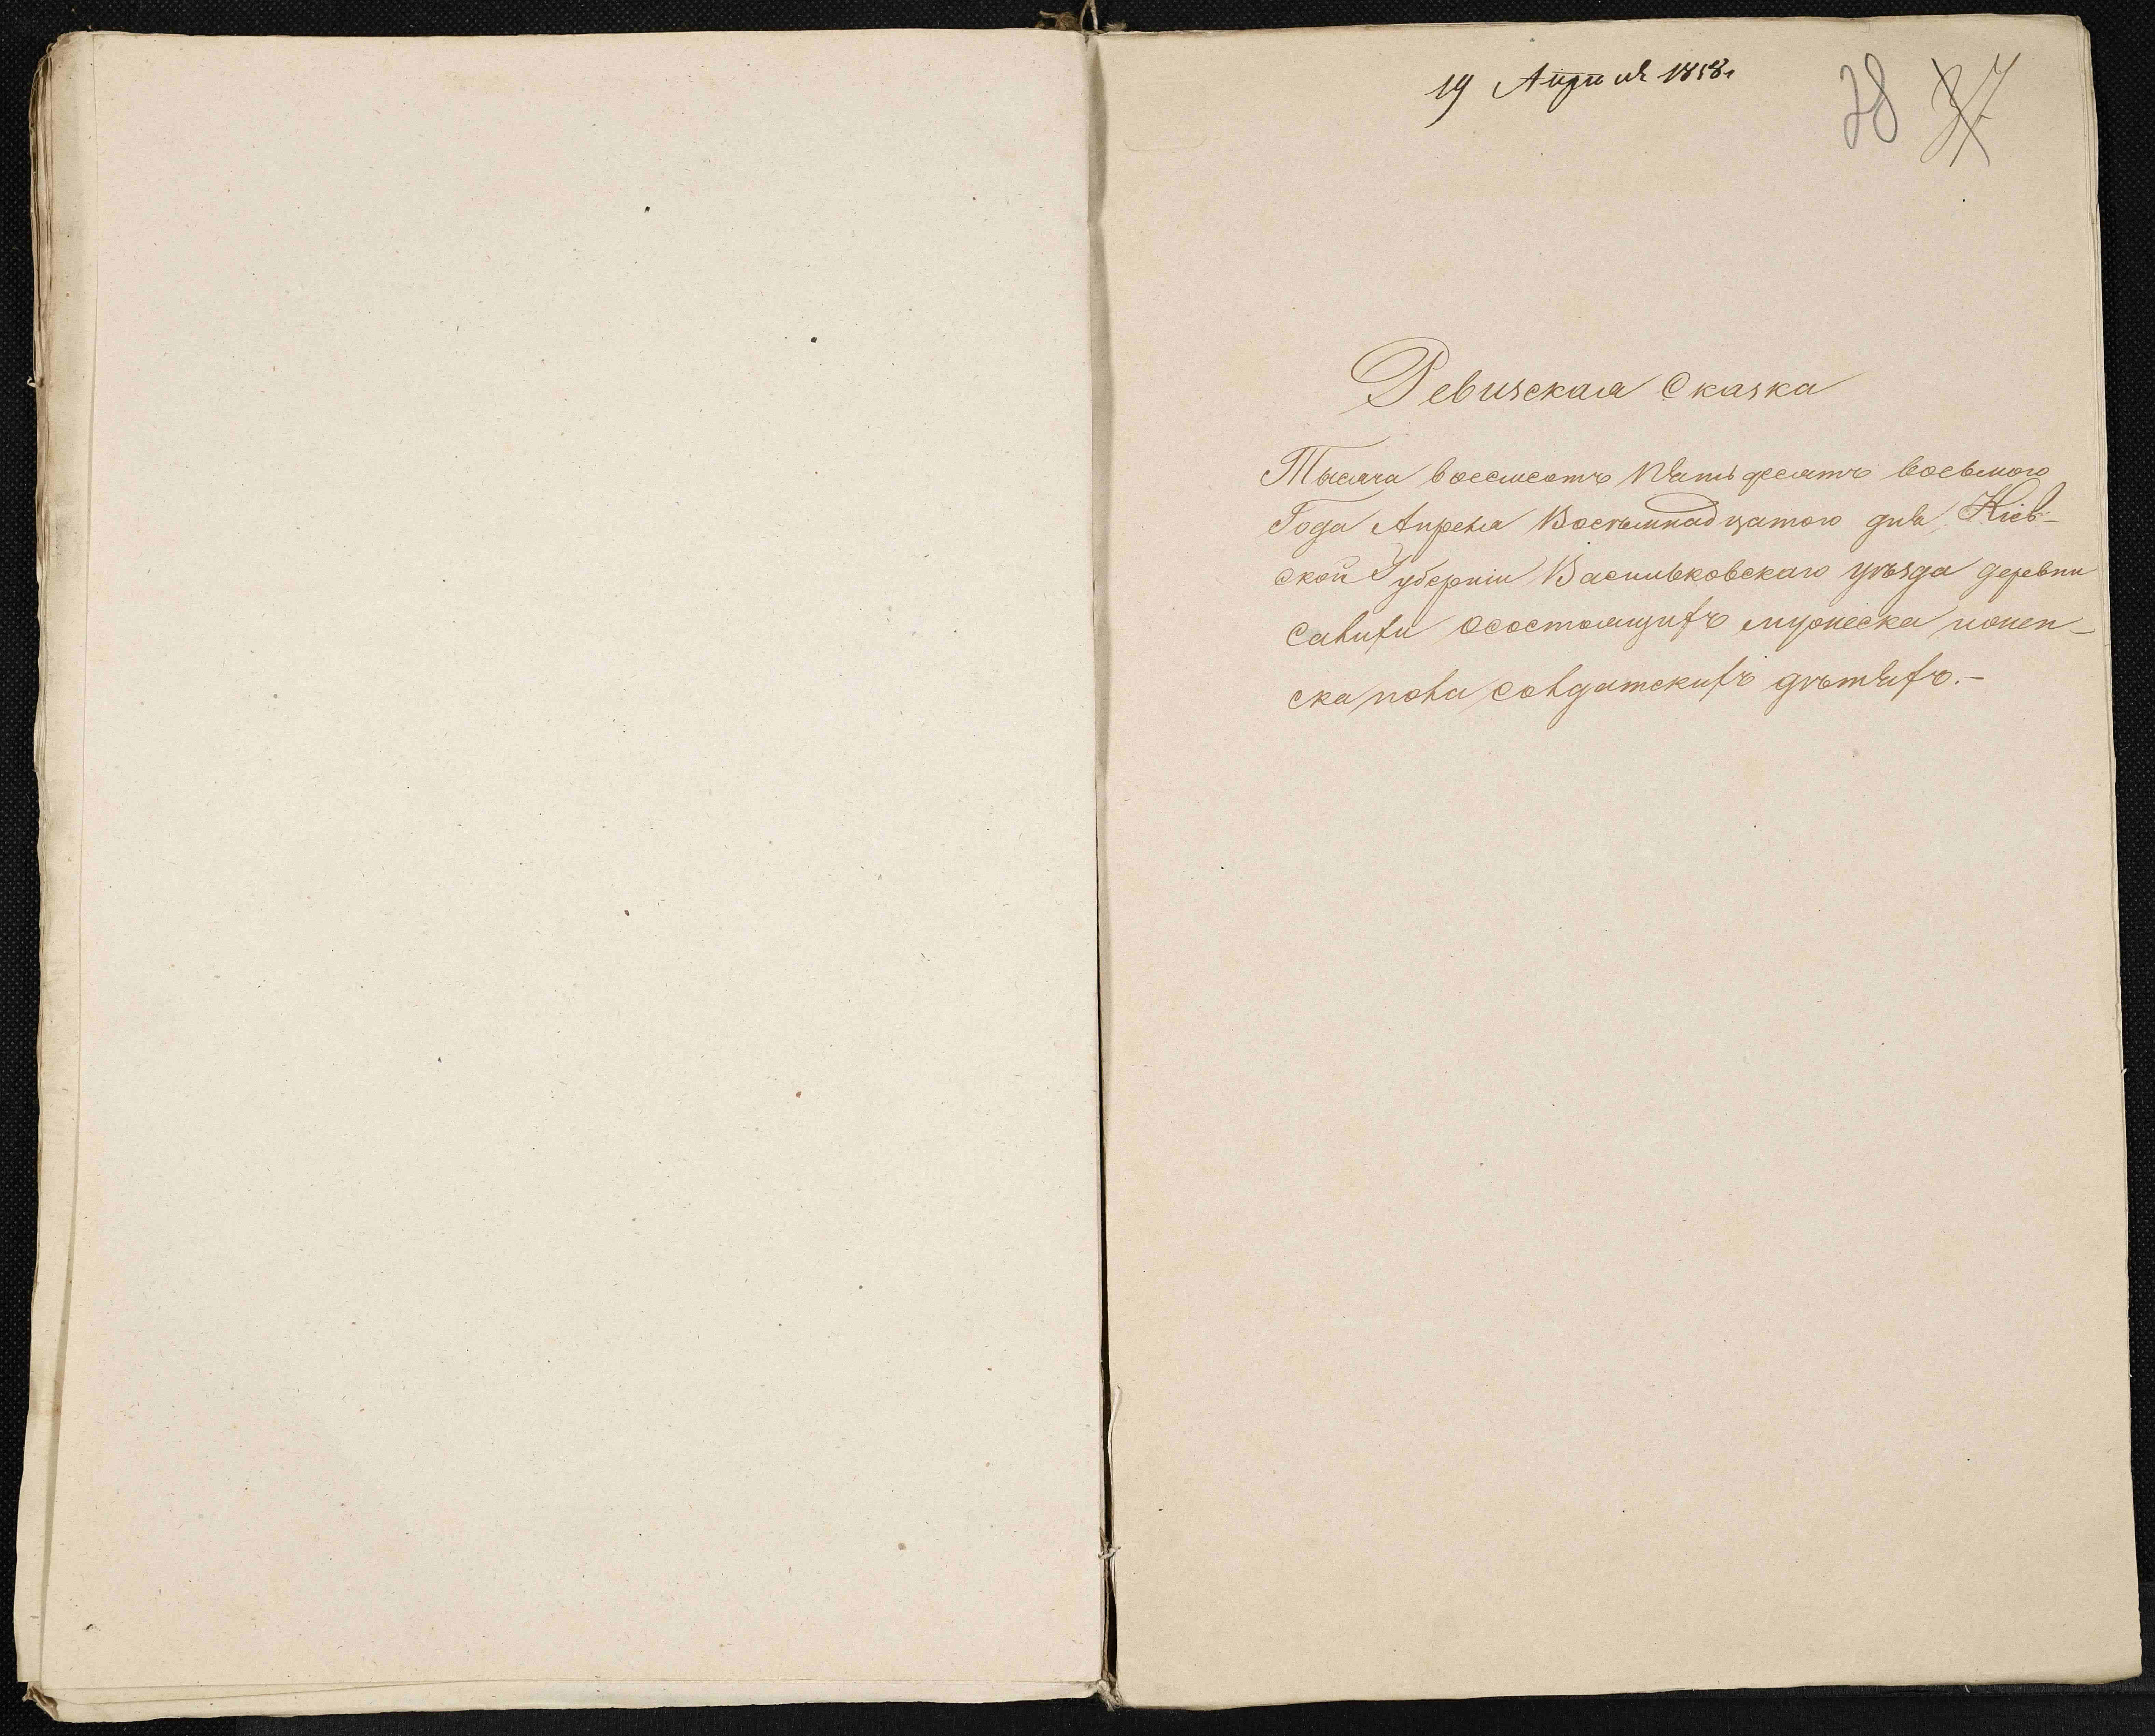 19 Апрѣля 1858.
28 37
Ревизская Сказка
Тысяча восемсотъ Пятьдесятъ восьмого
Года Апреля Восемнадцатого дня, Кіев-
ской Губерніи Васильковскаго уѣзда деревни
Салихи осостоящихъ мужеска иженъ-
ска пола солдатскихъ дѣтяхъ.-